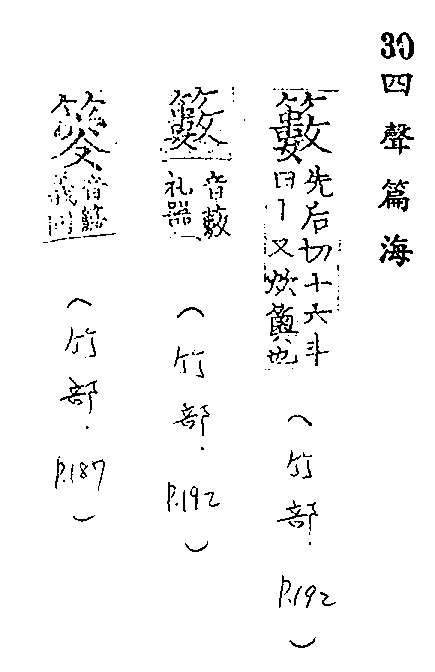 30 四聲篇海
籔 先后切十六斗
曰丨又炊䉛也
(竹部. P.192)
籔 音藪
礼器
(竹部. P.192)
音
義同
(竹部. P.187)